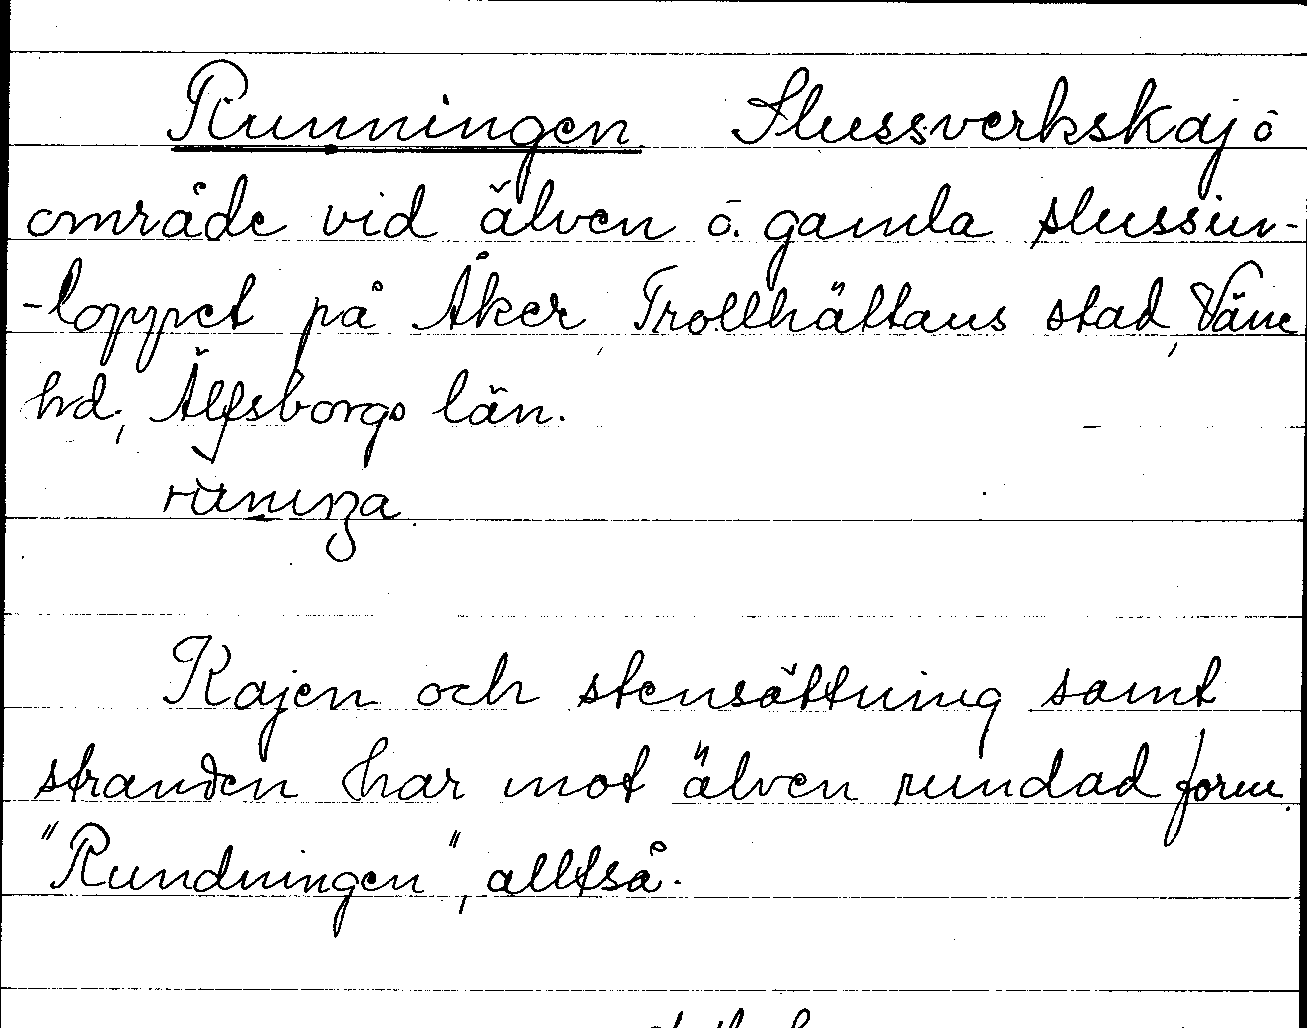 Runningen Slussverkskaj o
område vid älven ö. gamla slussin-
-loppet på Åker, Trollhättans stad, Väne
hd., Älfsborgs län.
Kajen och stensättning samt
stranden har mot älven rundad form.
"Rundningen", alltså.